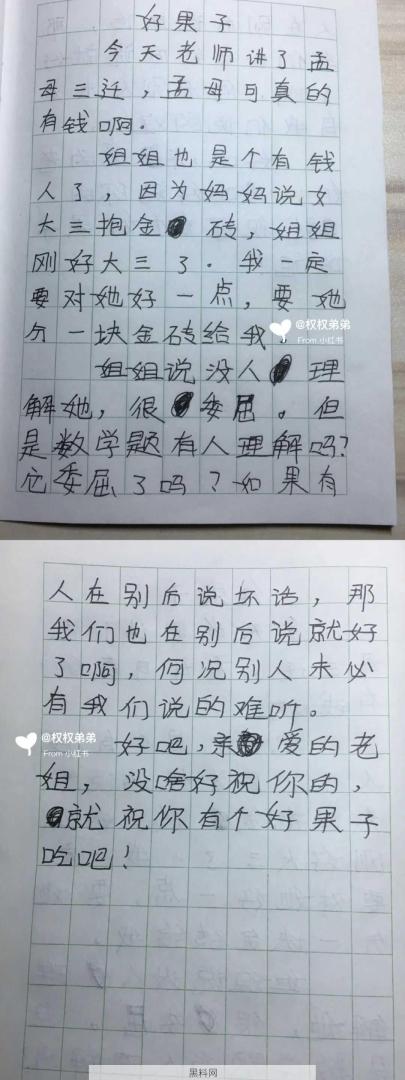 好果子
今天老师讲了孟
母三迁，孟母可真的
有钱啊。
姐姐也是个有钱
人了，因为妈妈说女
大三抱金砖，姐姐
刚好大三了。我一定
要对她好一点，要她
分一块金砖给我
@权权弟弟
From 小红书
姐姐说没人理
解她，很委屈。但
是数学题有人理解吗？
它委屈了吗？如果有
人在别后说坏话，那
我们也在别后说就好
了啊，何况别人未必
有我们说的难听。
@权权弟弟
From 小红书
好吧，亲爱的老
姐，没啥好祝你的，
就祝你有个好果子
吃吧！
黑料网